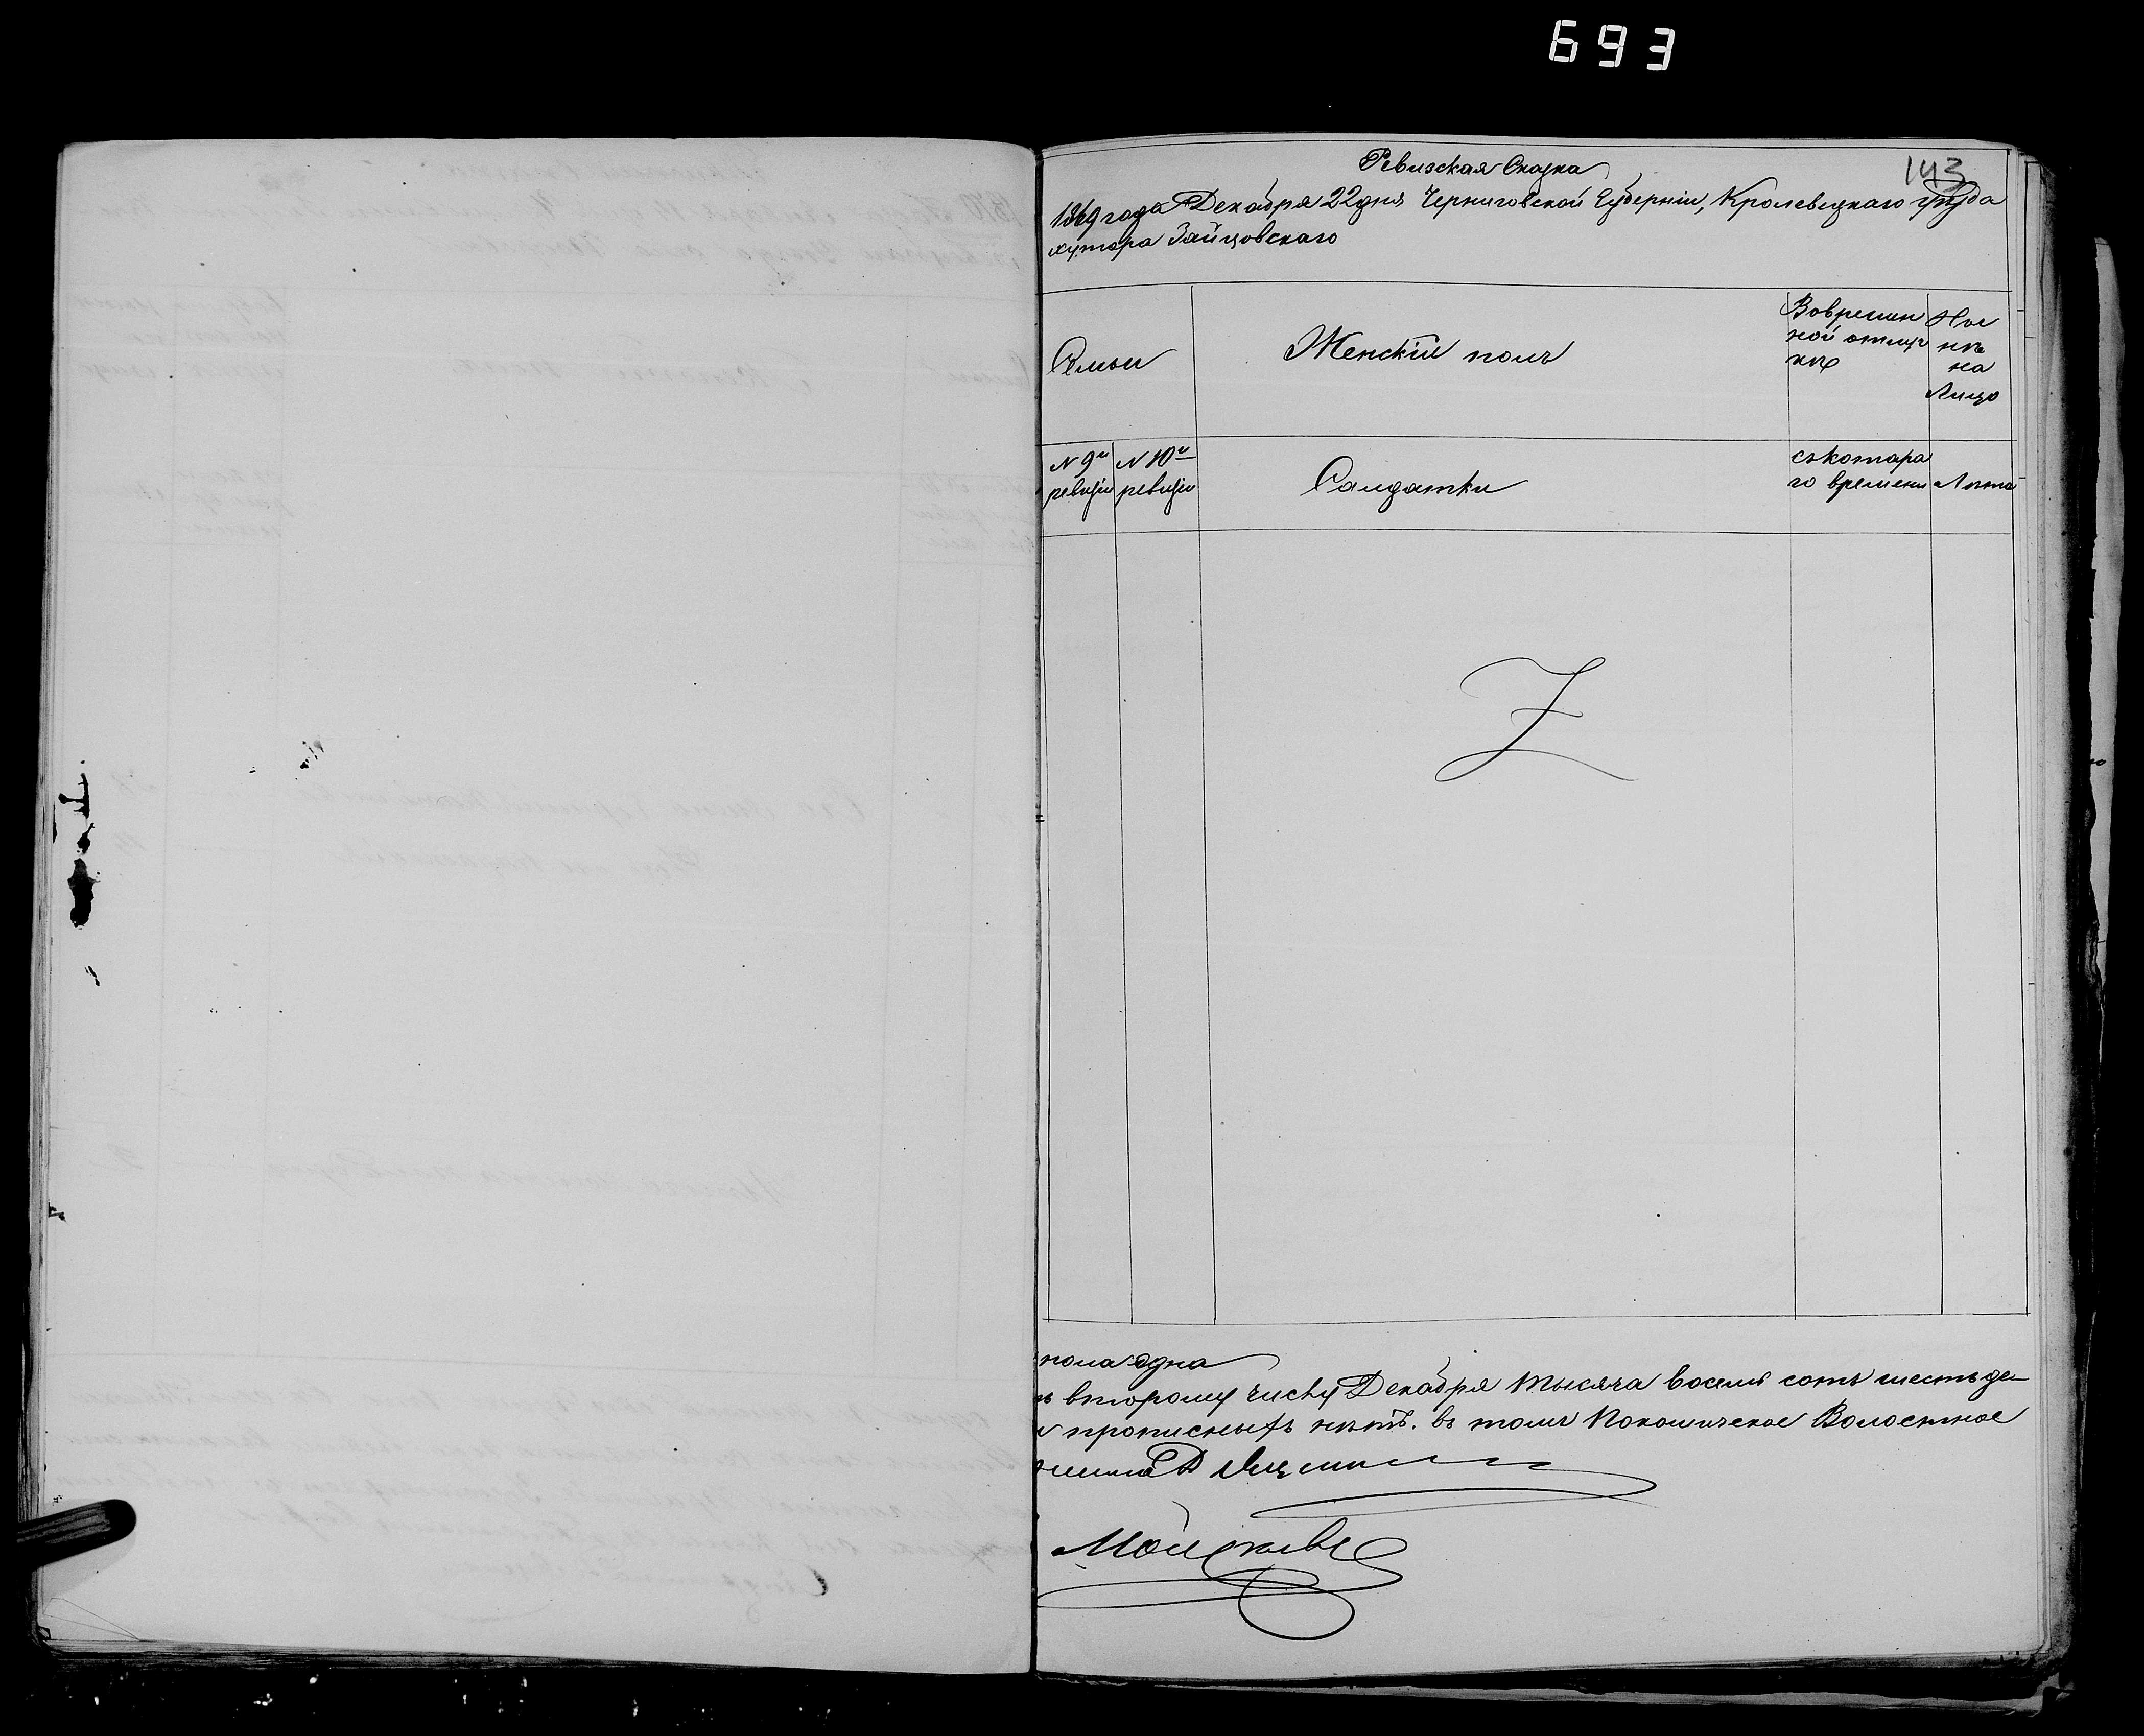 693
143
Ревизская Сказка
1869 года Декабря 22 дня Черниговской Губернiи, Кролевецкаго уѣзда
хутора Зайцовскаго
Семьи
Женскiй полъ
Вовремян
ной отлуч
кѣ
Ны
нѣ
на
Лицо
N 9й
ревизiи
N 10й
ревизiи
Салдатки
съкотара
го времени
Лѣта
пола одна
второму числу Декабря тысяча восемь сотъ шестьде
прописныхъ нѣтъ. въ томъ Волостное